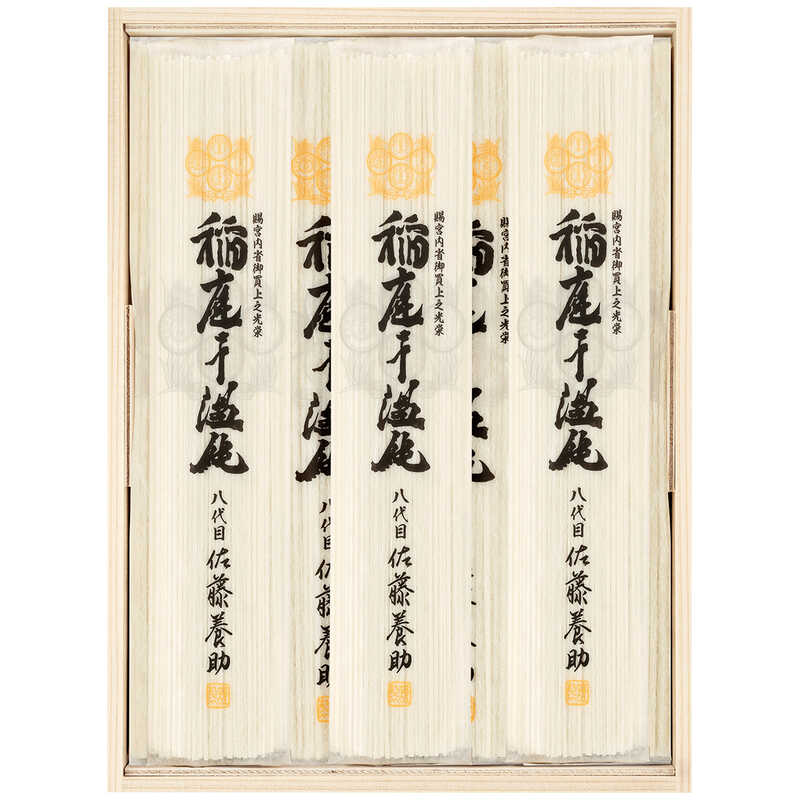 賜宮内省御買上之光栄
稲庭干温飩
八代目 佐藤養助
賜宮内省御買上之光栄
稲庭干温飩
八代目 佐藤養助
賜宮内省御買上之光栄
稲庭干温飩
八代目 佐藤養助
稲庭干温飩
八代目 佐藤養助
賜宮内省御買上之光栄